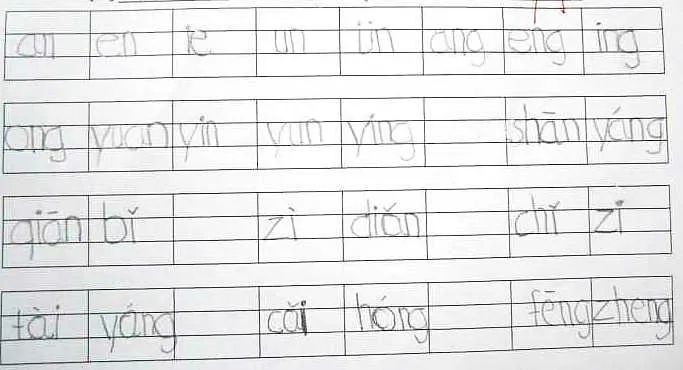 an en ie un ün ang eng ing
ong yuan yin yun ying shān yáng
qiān bǐ zì diǎn chǐ zi
tài yáng cǎi hóng fēng zheng